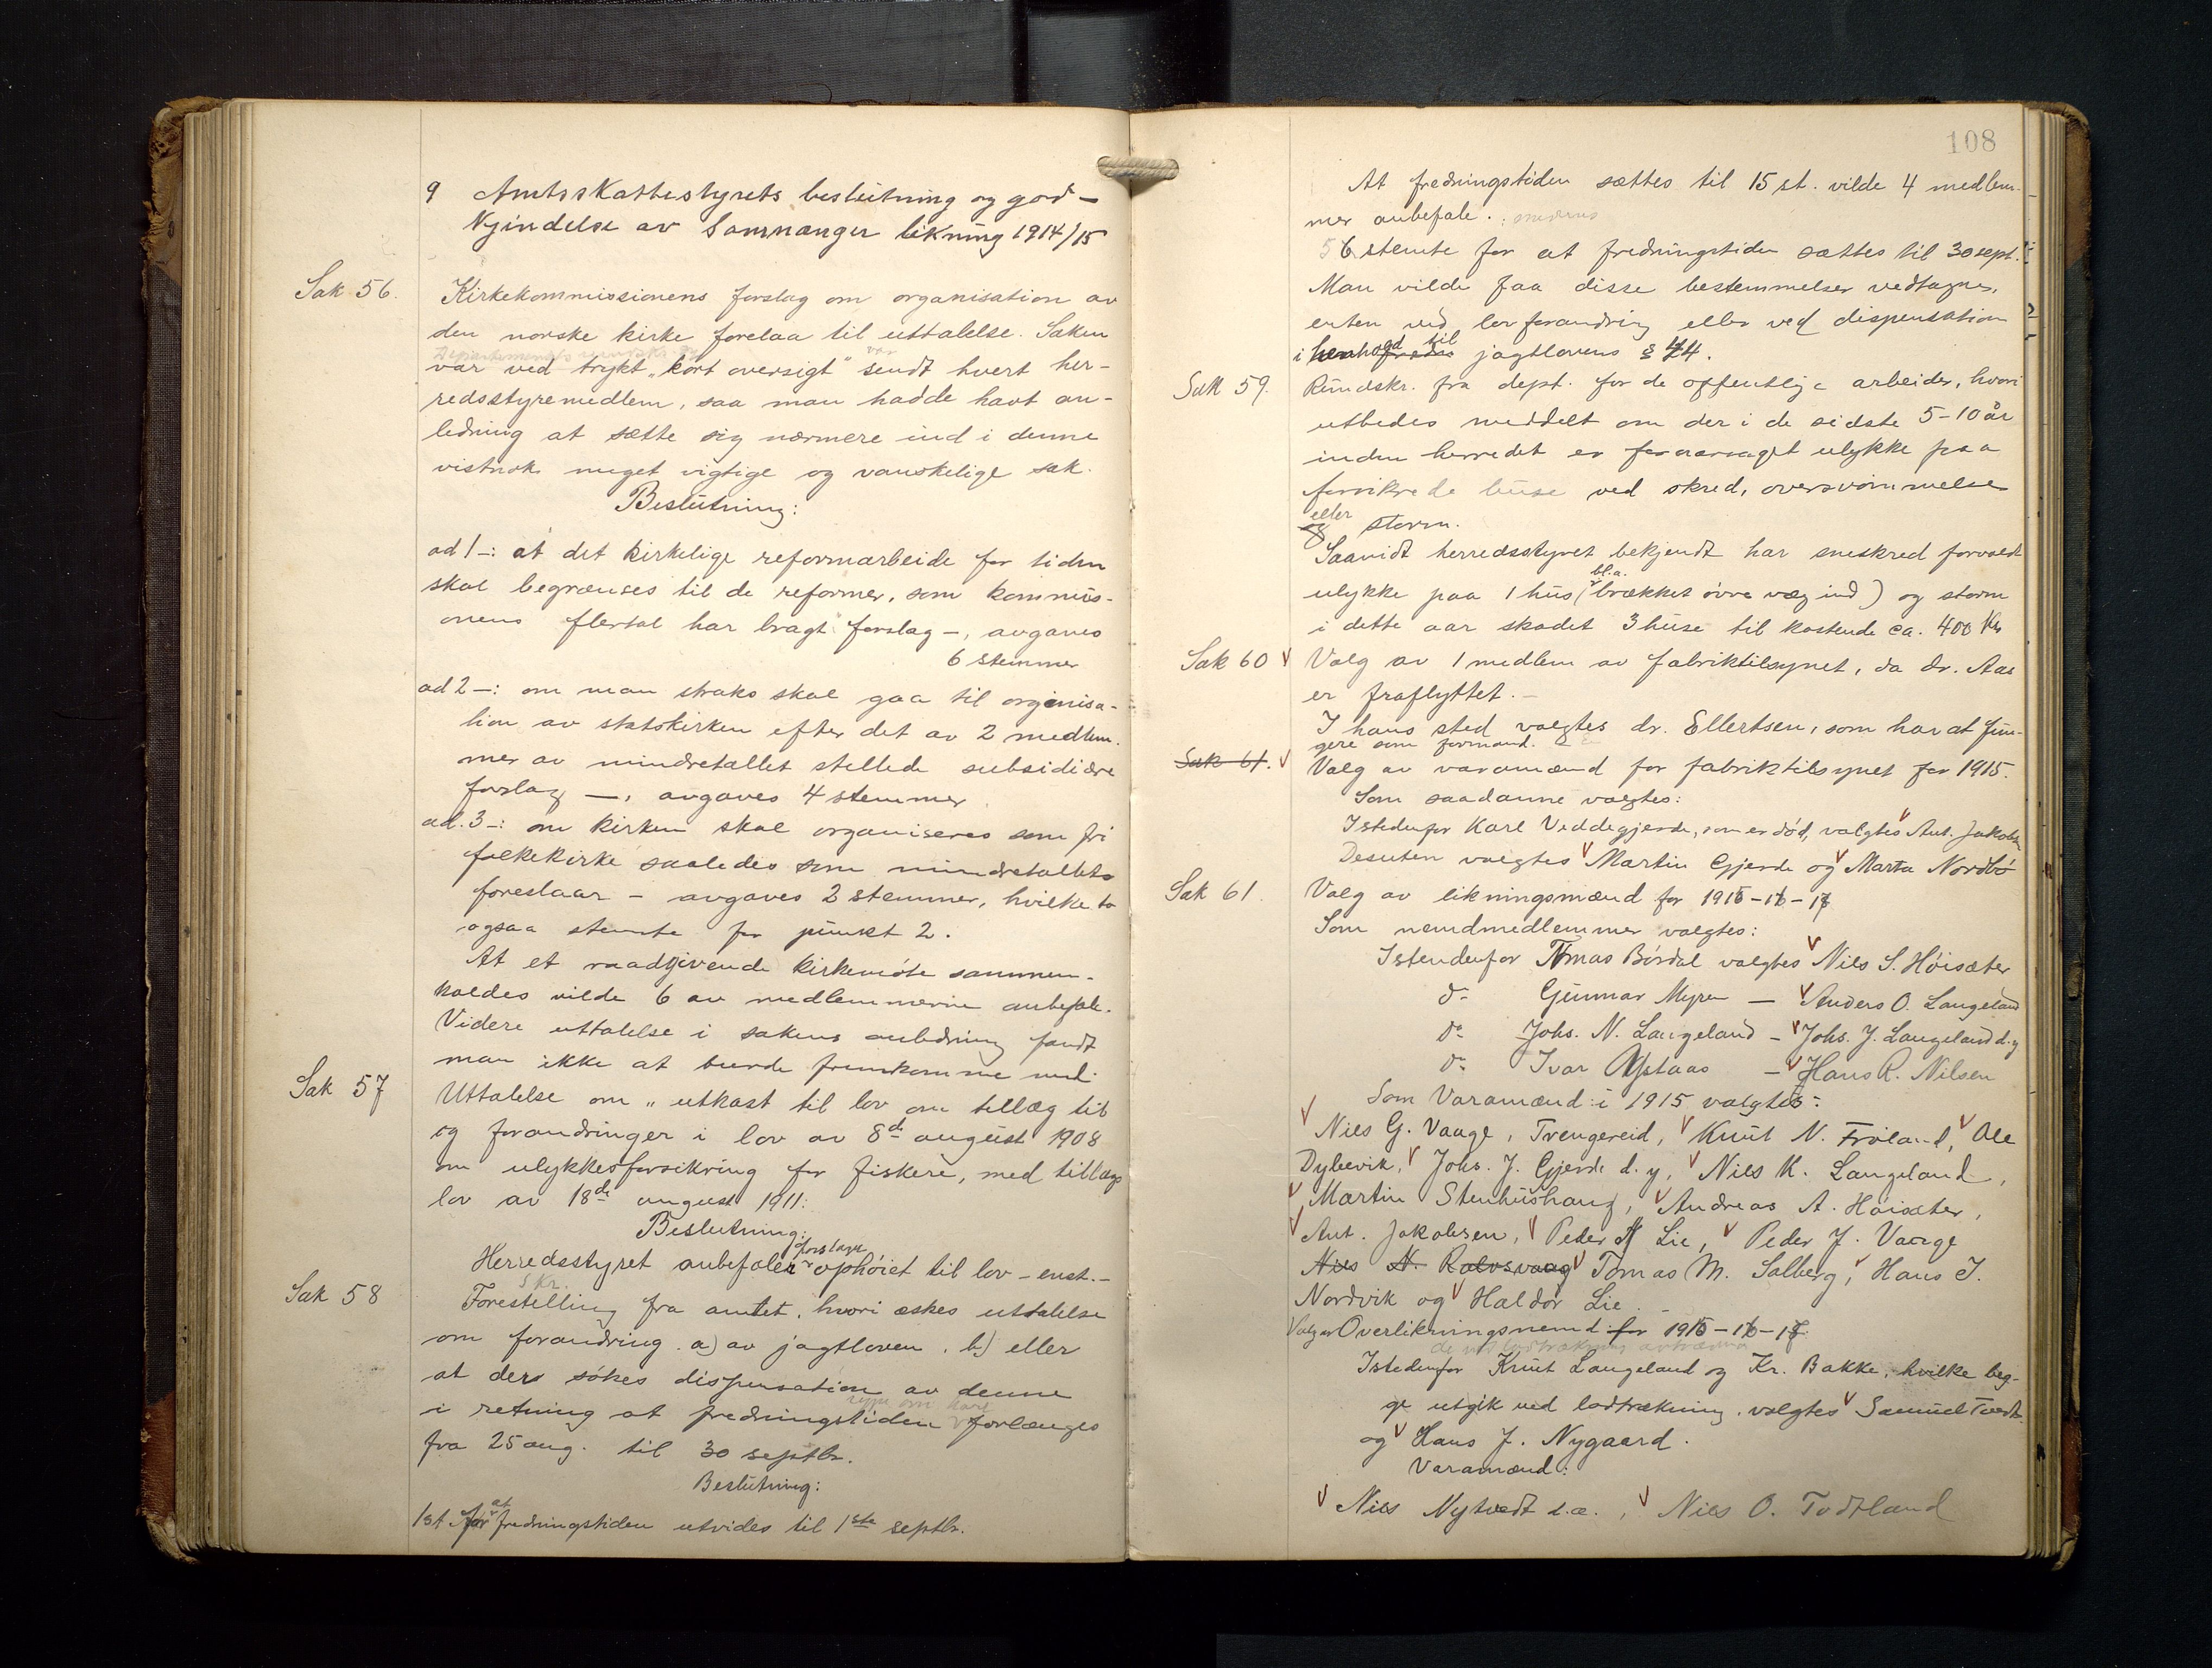 9 Amtsskattestyrets beslutning og god-
kjendelse av Samnanger likning 1914/15
Sak 56. Kirkekommissionens forslag om organisation av
den norske kirke forelaa til uttalelse. Saken
var ved trykt „kort oversigt" sendt hvert her-
redsstyremedlem, saa man hadde havt an-
ledning at sætte sig nærmere ind i denne
vistnok meget vigtige og vanskelige sak.
Beslutning:
ad 1-: at det kirkelige reformarbeide for tiden
skal begrænses til de reformer, som kommis-
onens flertal har bragt forslag -, avgaves
6 stemmer
ad 2-: om man straks skal gaa til organisa-
tion av statskirken efter det av 2 medlem-
mer av mindretallet stellede subsidiære
forslag -, avgaves 4 stemmer
ad. 3-: om kirken skal organiseres som fri
folkekirke saaledes som mindretallets
foreslaar - avgaves 2 stemmer, hvilke to
ogsaa stemte for punkt 2.
At et raadgivende kirkemöte sammen-
kaldes vilde 6 av medlemmerne anbefale.
Videre uttalelse i sakens anledning fandt
man ikke at burde fremkomme med.
Sak 57 Uttalelse om „utkast til lov om tillæg til
og forandringer i lov av 8de august 1908
om ulykkesforsikring for fiskere, med tillægs
lov av 18de august 1911:
Beslutning:
Herredsstyret anbefaler forslaget ophöiet til lov - enst.-
Sak 58 Forestelling skr. fra amtet, hvori æskes uttalelse
om forandring a) av jagtloven, b) eller
at der søkes dispensation av denne
i retning at fredningstiden forlænges
fra 25 aug. til 30 septbr.
Beslutning:
1st for at fredningstiden utvides til 1ste septbr.
108
At fredningstiden sættes til 15 st. vilde 4 medlem-
mer anbefale.
6 stemte for at fredningstiden sættes til 30 sept.
Man vilde faa disse bestemmelser vedtagne,
enten ved lovforandring eller ved dispensation
i henhold til jagtlovens § 44.
Sak 59. Rundskr. fra dept. for de offentlige arbeider, hvori
utbedes meddelt om der i de sidste 5-10 år
inden herredet er foraarsaget ulykke paa
forsikrede huse ved skred, oversvömmelse
og eller storm.
Saavidt herredsstyret bekjendt har sneskred forvoldt
ulykke paa 1 hus (bl.a. brækket övre væg ind) og storm
i dette aar skadet 3 huse til kostende ca. 400 kr
Sak 60 Valg av 1 medlem av fabriktilsynet, da dr. Aas
er fraflyttet.-
I hans sted valgtes dr. Ellertsen, som har at fun-
gere som formand.
Sak 61. Valg av varamænd for fabriktilsynet for 1915.
Som saadanne valgtes:
Istedenfor Karl Veddegjerde, som er död, valgtes Ant. Jakobsen
Desuten valgtes Martin Gjerde og Marta Nordbö
Sak 61. Valg av likningsmænd for 1915-16-17
Som nemdmedlemmer valgtes:
Istendenfor Tomas Bördal valgtes Nils S. Höisæter
do Gunnar Myren - Anders O. Langeland
do Johs. N. Langeland - Johs. J. Langeland d.y
do Ivar Aystaas - Hans R. Nilsen
Som Varamænd i 1915 valgtes:
Nils G. Vaage, Trengereid, Knut N. Fröland, Ole
Dyhevik, Johs. J. Gjerde d.y, Nils K. Langeland,
Martin Stenhushaug, Andreas A. Höisæter,
Ant. Jakobsen, Peder Lie, Peder J. Vaage
Nils N. Rolvsvaag Tomas M. Solberg, Hans J.
Nordvik og Haldor Lie.
Valg av Overlikningsnemd for 1915-16-17
Istedenfor Knut Langeland og Kr. Bakke, hvilke beg-
ge utgik ved lodtrækning, valgtes Samuel Tvedt
og Hans J. Nygaard.
Varamænd:
Nils Nytvedt d.æ., Nils O. Todtland